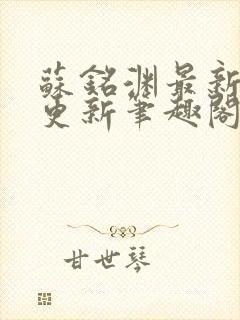 蘇銘淵最新
更新筆趣閣
甘世琴